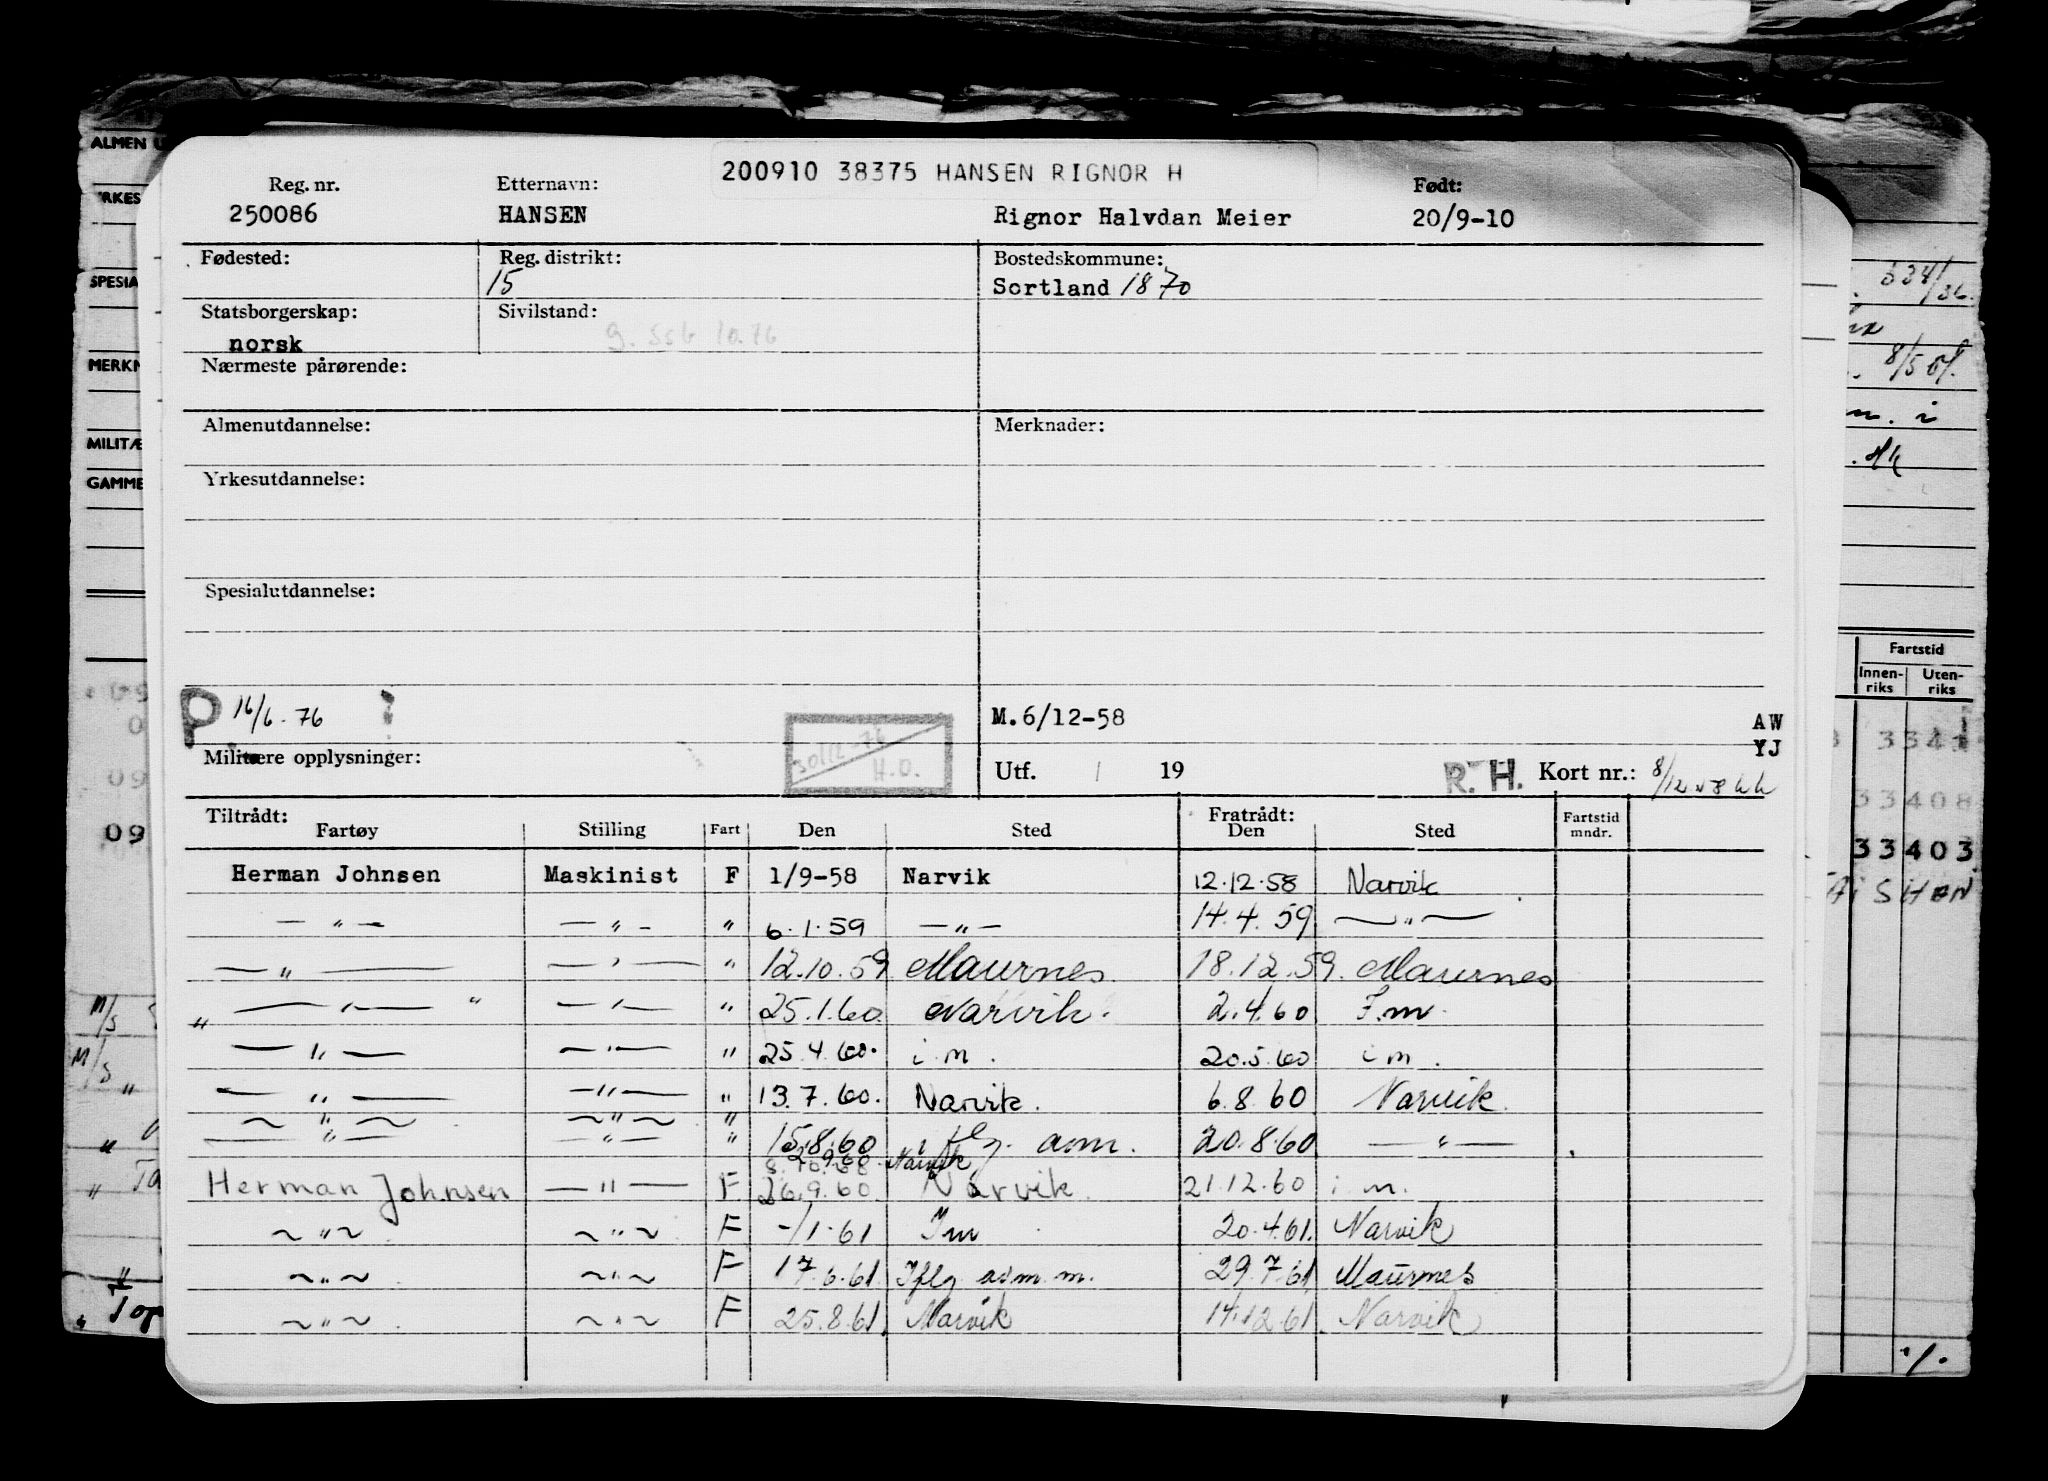 200910 38375 HANSEN RIGNOR H
Reg. nr. Etternavn: Født:
250086 HANSEN Rignor Halvdan Meier 20/9-10
Fødested: Reg. distrikt: Bostedskommune:
15 Sortland 1870
Statsborgerskap: Sivilstand:
norsk g. SSB 10.76
Nærmeste pårørende:
Almenutdannelse: Merknader:
Yrkesutdannelse:
Spesialutdannelse:
P 16/6-76 M.6/12-58 AW
YJ
Militære opplysninger: 30/12-76 H.O. Utf. / 19 R.H. Kort nr.: 8/12
Tiltrådt: Fratrådt:
Fartøy Stilling Fart Den Sted Den Sted Fartstid mndr.
Herman Johnsen Maskinist F 1/9-58 Narvik 12.12.58 Narvik
—"— —"— " 6.1.59 —"— 14.4.59 —"—
—"— —"— " 12.10.59 Maurnes 18.12.59. Maurnes
—"— " —"— " 25.1.60 Narvik. 2.4.60 I.m.
—"— —"— " 25.4.60. i m. 20.5.60 i m.
—"— —"— " 13.7.60. Narvik. 6.8.60 Narvik.
~"~ ~"~ "
—"— —"— " 15.8.60 iflg. asm. 20.8.60 —"—
Narvik
Herman Johnsen —"— F 26.9.60 Narvik. 21.12.60 i m.
~"~ ~"~ F -/1-61 I m 20.4.61. Narvik
~"~ ~"~ F 17.6.61. Iflg asm. m. 29.7.61 Maurnes
~"~ ~"~ F 25.8.61. Narvik 14.12.61. Narvik
ALMEN
YRKES
SPESIA
MERKN
MILITÆ
GAMME
09
M/S
M/S
334/36.
8/5
Fartstid
Innenriks Utenriks
33408
33403